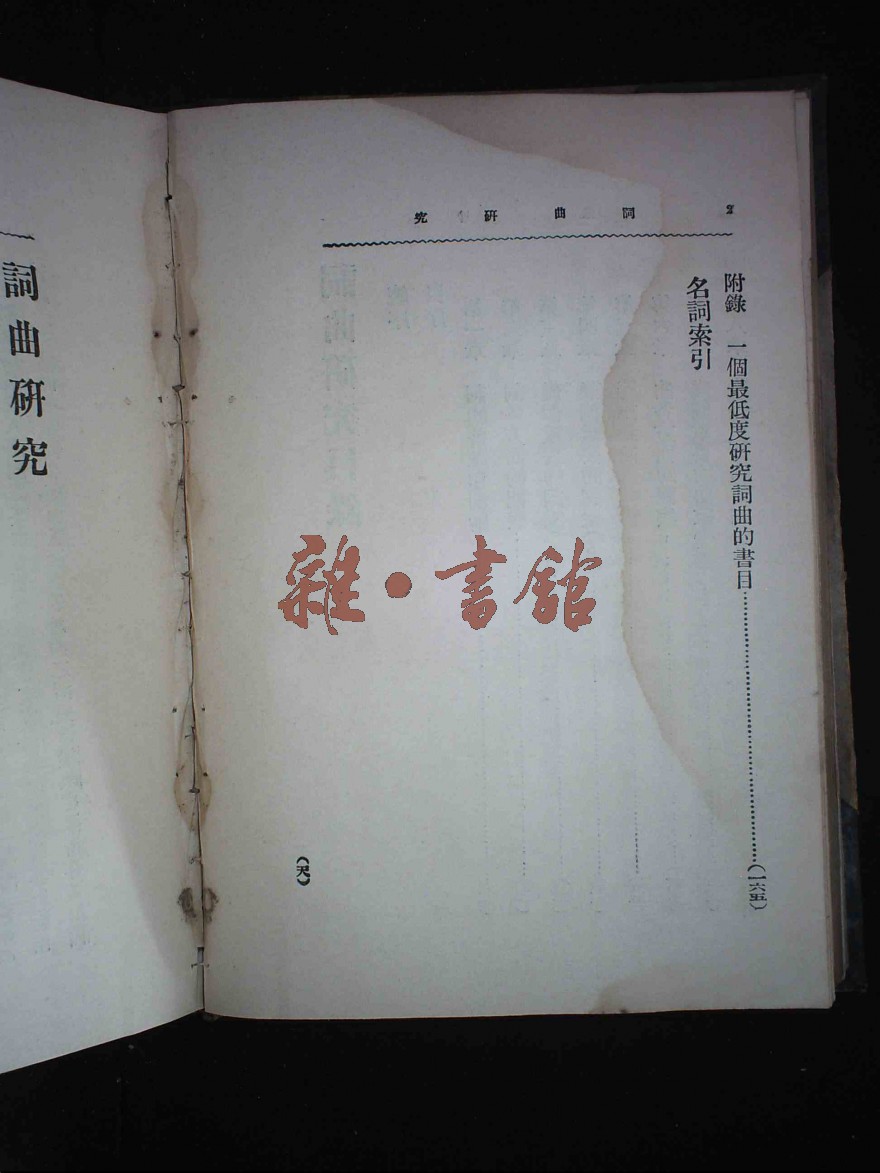 詞曲研究
2
附錄 一個最低度研究詞曲的書目……(一六五)
名詞索引
詞曲研究
雜·書館